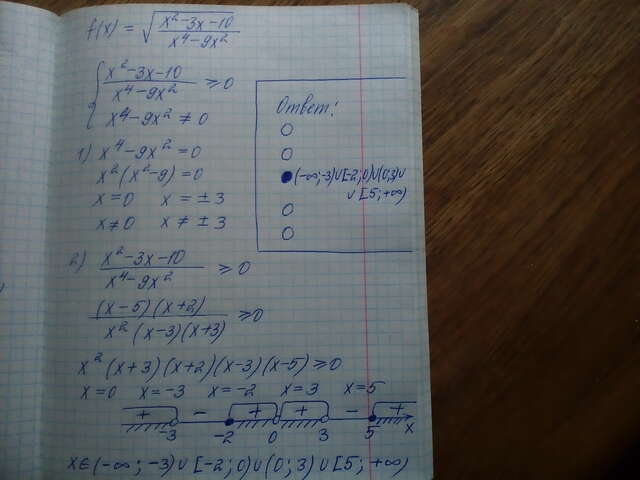 f(x) = √((x²-3x-10)/(x⁴-9x²))
{ (x²-3x-10)/(x⁴-9x²) ⩾ 0
x⁴-9x² ≠ 0
1) x⁴-9x² = 0
x²(x²-9) = 0
x=0 x = ±3
x≠0 x ≠ ±3
Ответ:
(-∞;-3)∪[-2;0)∪(0;3)∪
∪[5;+∞)
2) (x²-3x-10)/(x⁴-9x²) ⩾ 0
((x-5)(x+2))/(x²(x-3)(x+3)) ⩾ 0
x²(x+3)(x+2)(x-3)(x-5) ⩾ 0
x=0 x=-3 x=-2 x=3 x=5
+ - + + - +
-3 -2 0 3 5 x
x∈(-∞;-3)∪[-2;0)∪(0;3)∪[5;+∞)